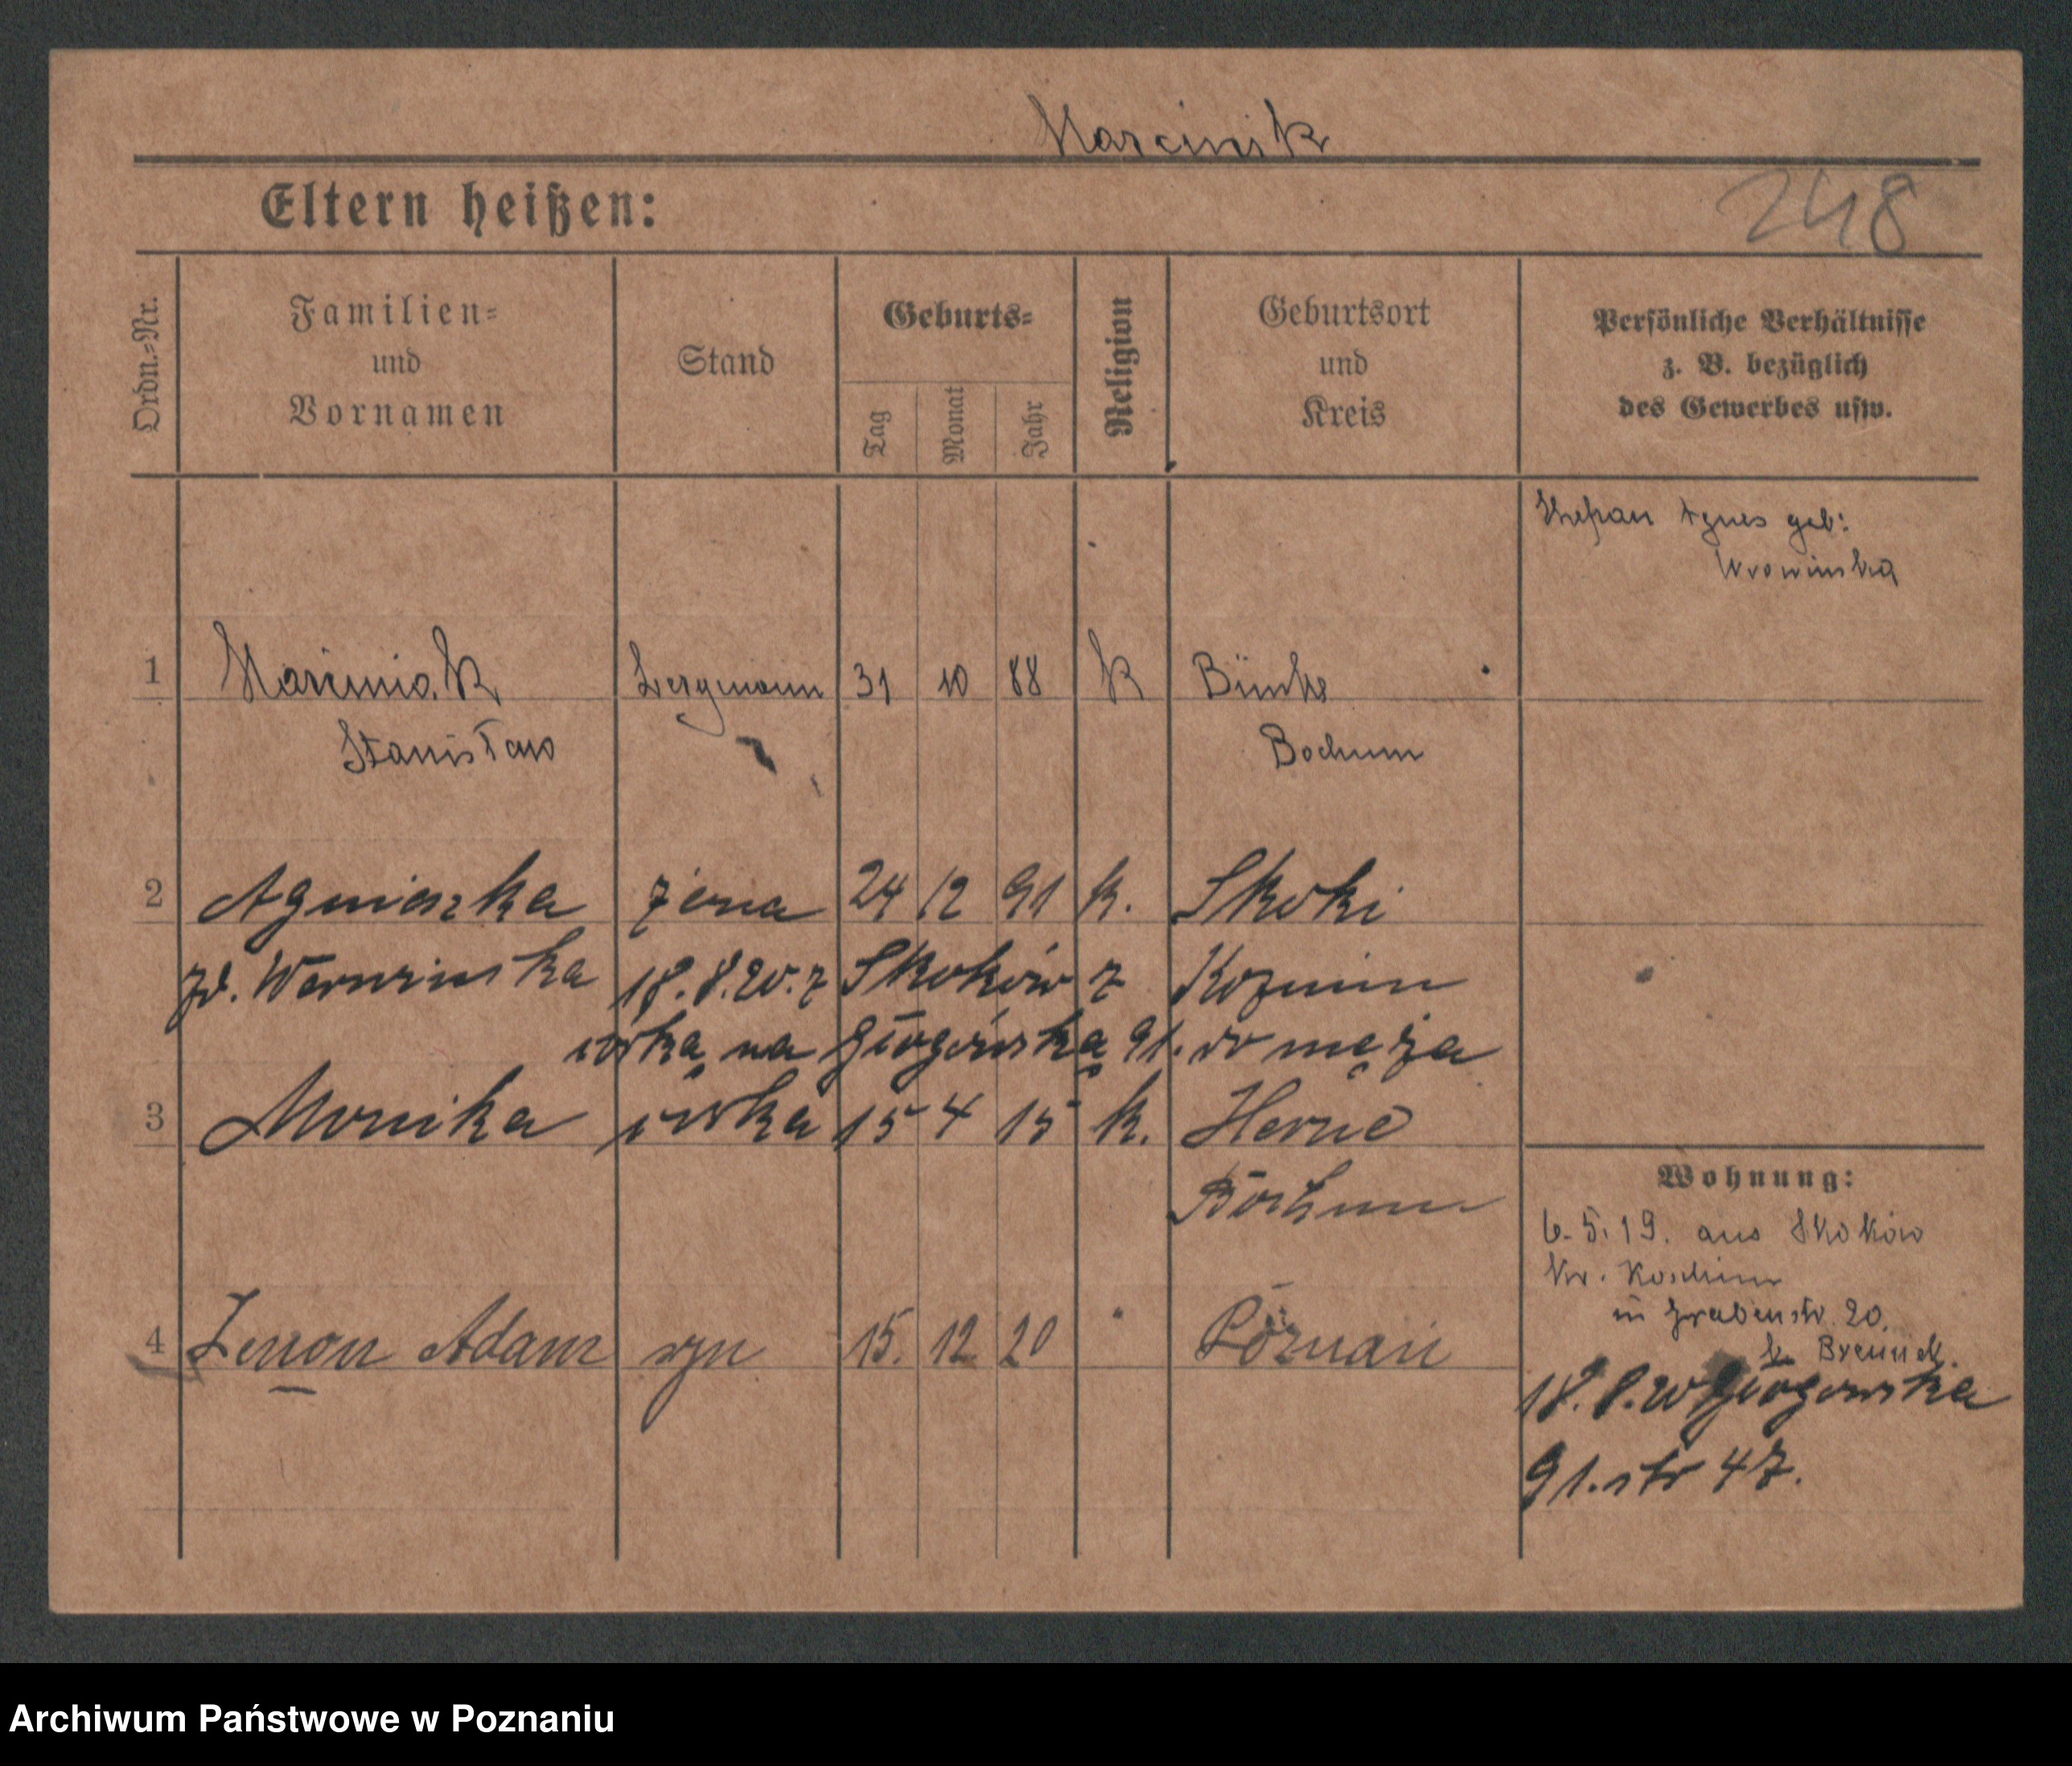 Marcinik
Eltern heißen:
248
Ordn.-Nr.
Familien-
und
Vornamen
Stand
Geburts-
Tag
Monat
Jahr
Religion
Geburtsort
und
Kreis
Persönliche Verhältnisse
z. B. bezüglich
des Gewerbes usw.
Ehefrau Agnes geb:
1 Marciniak Bergmann 31 10 88 K
Stanisław Bochum
2 Agnieszka żona 24 12 91 k. Skoki
zd. 18.8.20. z Skoków z Kozmin
córką na Głogowską 91. do męża
3 Monika córka 15 4 15 k. Herne
Bochum
Wohnung:
6.5.19. aus Skoków
Kr. Koschmin
in Grabenstr. 20.
b.
4 Zenon Adam syn 15. 12 20 " Poznań
18.8.20 Głogowska
91. str 47.
Archiwum Państwowe w Poznaniu